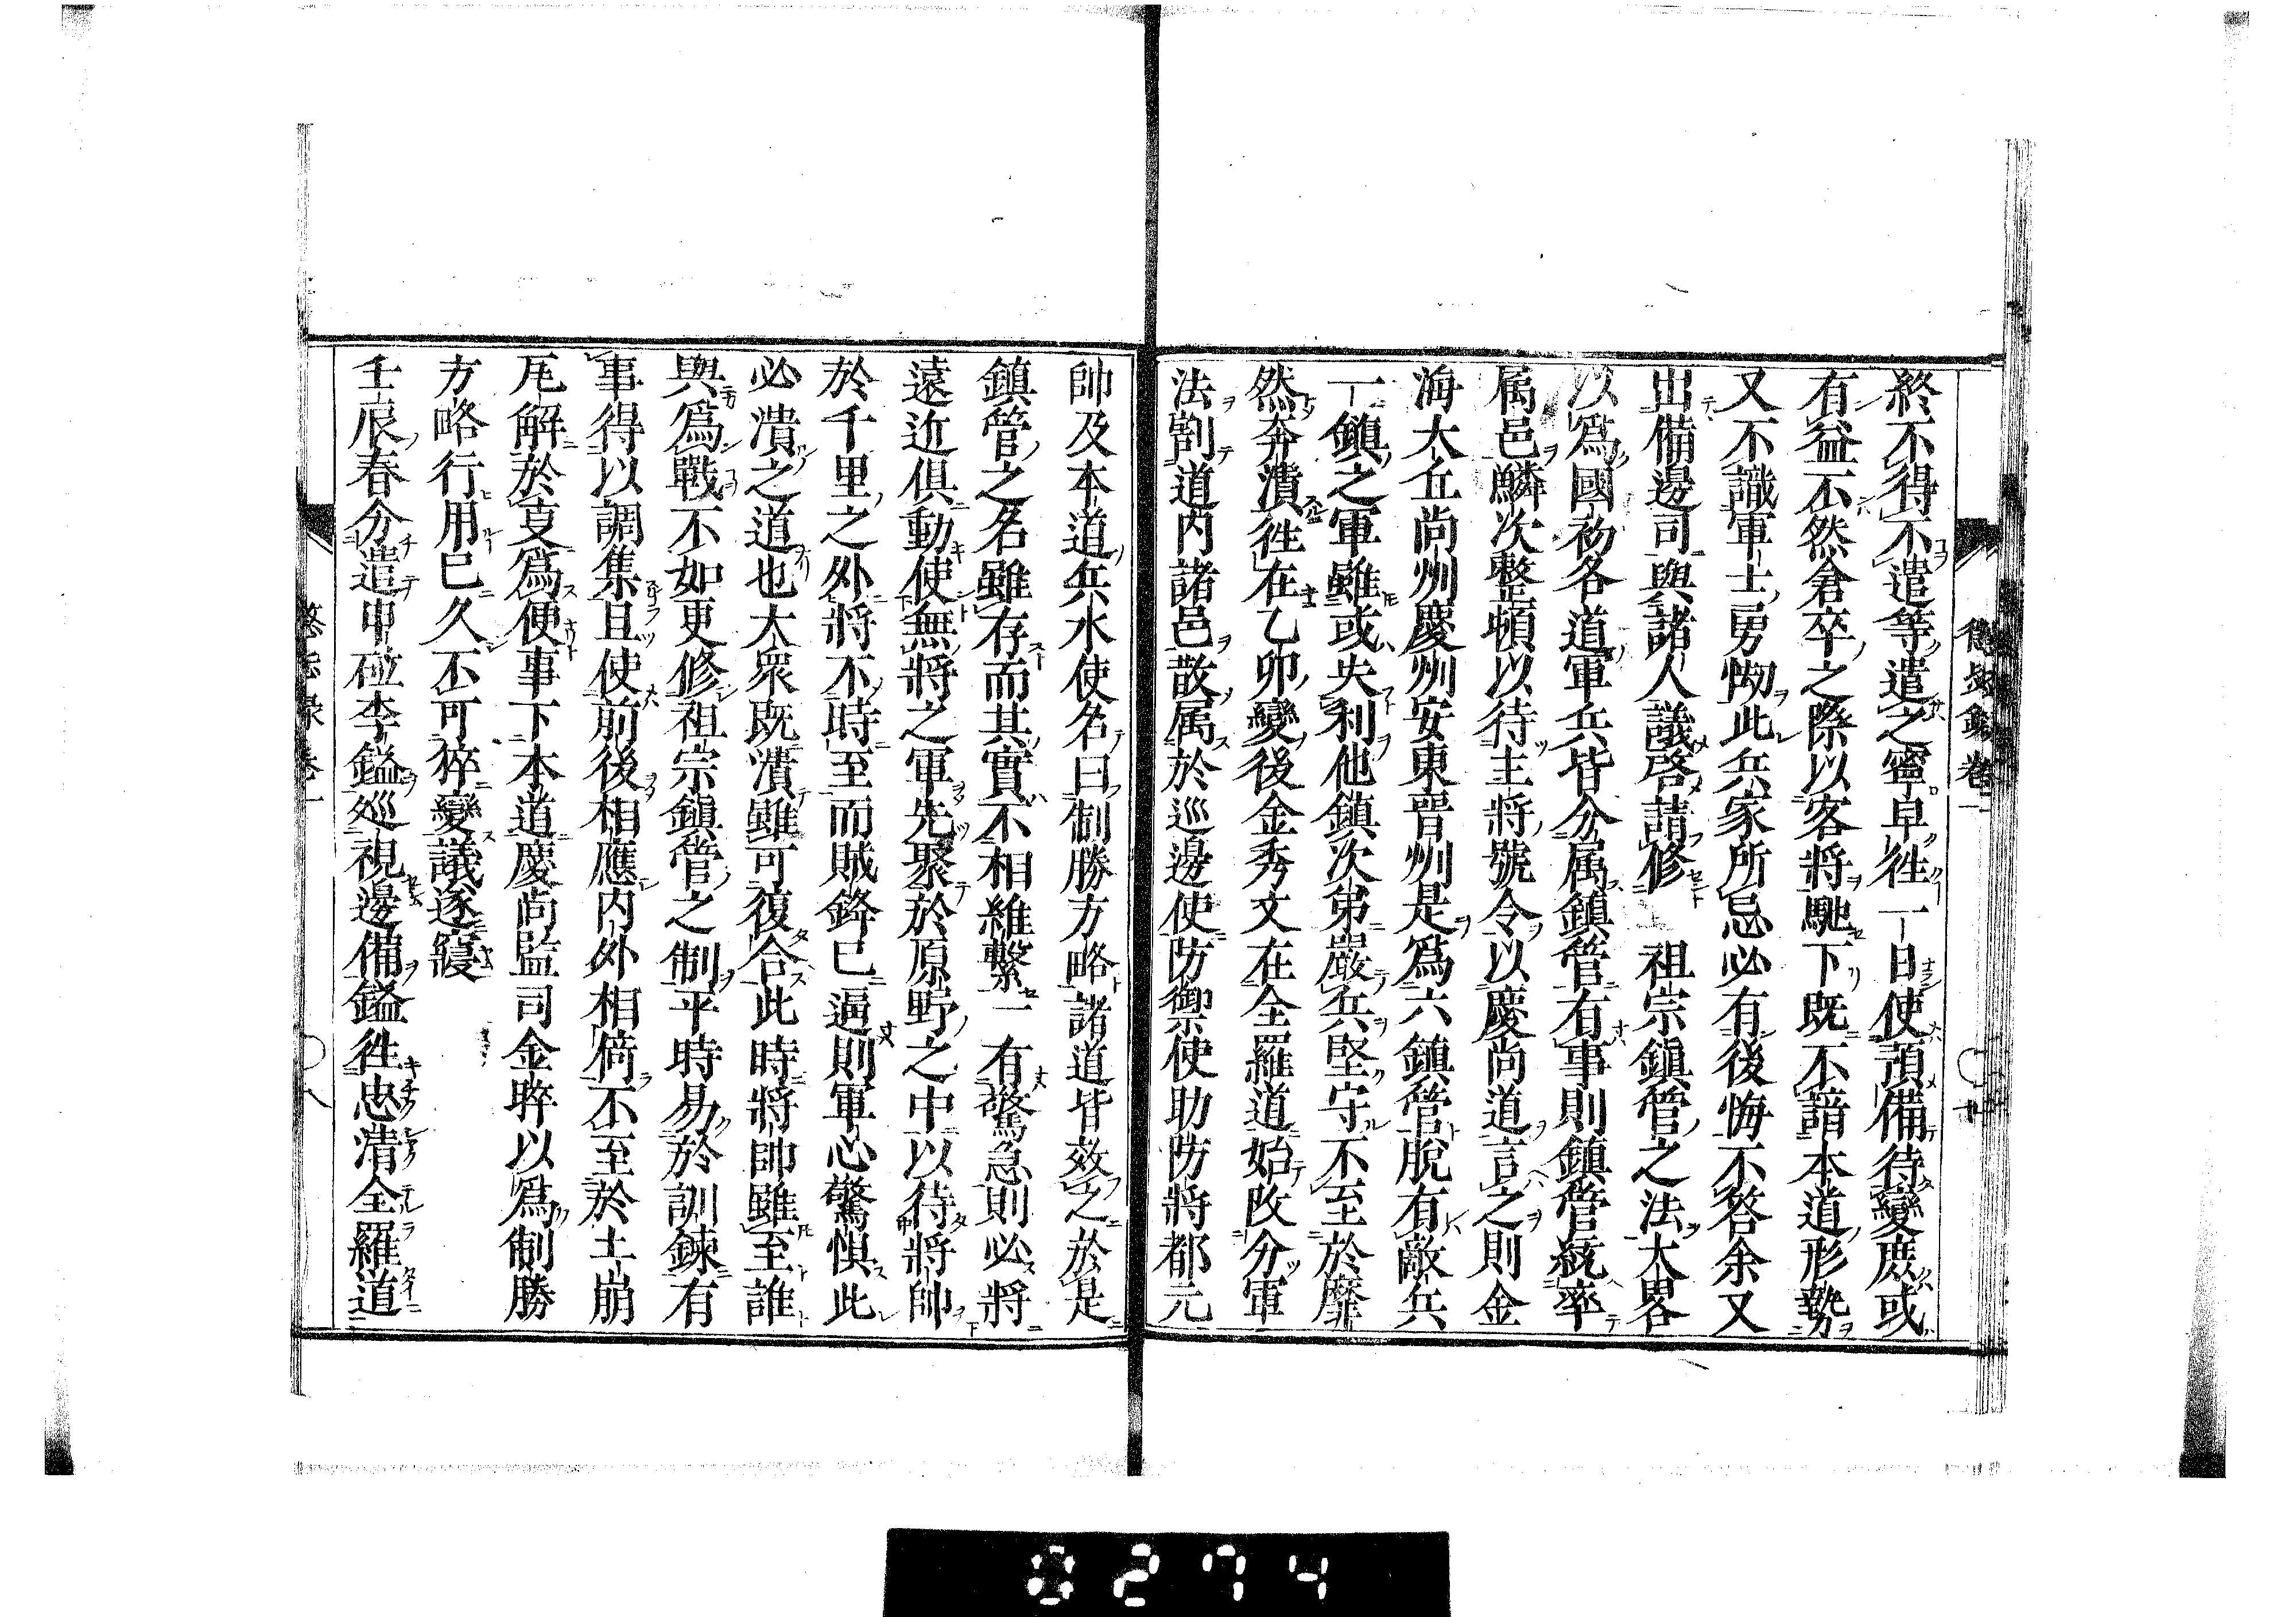 終不得不遣等遣之寧早徃一日使預備待變庻或
有益云然倉卒之際以客將馳下既不諳本道形勢
又不識軍士勇㤼此兵家所忌必有後悔不答余又
出備邊司與諸人議啓請修　祖宗鎮管之法大畧
以爲國初各道軍兵皆分属鎮管有事則鎮管統率
属邑鱗次整頓以待主將號令以慶尚道言之則金
海大丘尚州慶州安東晋州是爲六鎮管脱有敵兵
一鎮之軍雖或失利他鎮次弟嚴兵堅守不至於靡
然奔潰徃在乙卯變後金秀文在全羅道始改分軍
法割道内諸邑散属於巡邊使防禦使助防將都元
帥及本道兵水使名曰制勝方略諸道皆效之於是
鎮管之名雖存而其實不相維繋一有驚急則必將
遠近俱動使無將之軍先聚於原野之中以待將帥
於千里之外將不時至而賊鋒已逼則軍心驚惧此
必潰之道也大衆既潰雖可復合此時將帥雖至誰
與爲戰不如更修祖宗鎮管之制平時易於訓鍊有
事得以調集且使前後相應内外相倚不至於土崩
尾解於支爲便事下本道慶尚監司金睟以爲制勝
方略行用已久不可猝變議遂寢
壬辰春分遣申砬李鎰巡視邊備鎰徃忠清全羅道
懲毖録卷一
〇八